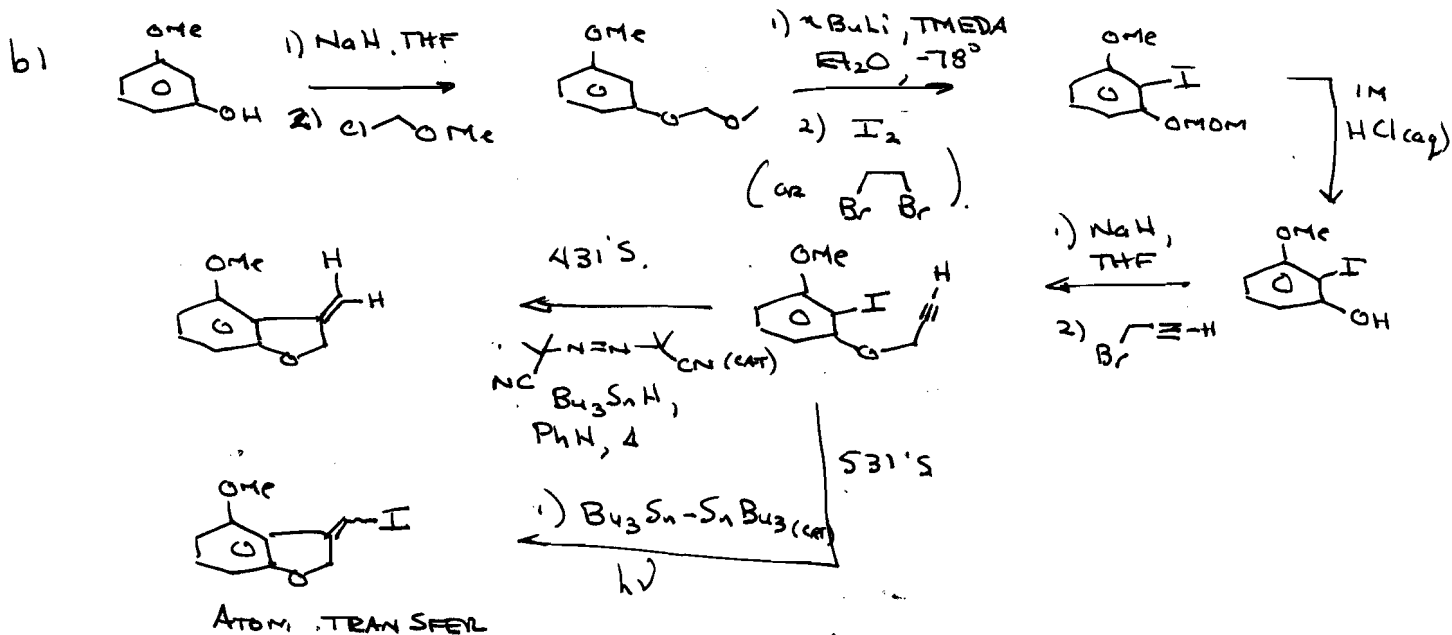 b)
OMe
OH
1) NaH, THF
2) Cl OMe
OMe
O O
1) nBuLi, TMEDA
Et2O, -78°
2) I2
(or Br Br).
OMe
I
OMOM
1M
HCl(aq)
OMe
I
OH
1) NaH,
THF
2) Br ≡-H
OMe
I
H
O
431's.
NC N=N CN (CAT)
Bu3SnH,
PhH, Δ
OMe
H
H
O
531's
1) Bu3Sn-SnBu3(CAT)
hν
OMe
I
O
ATOM TRANSFER